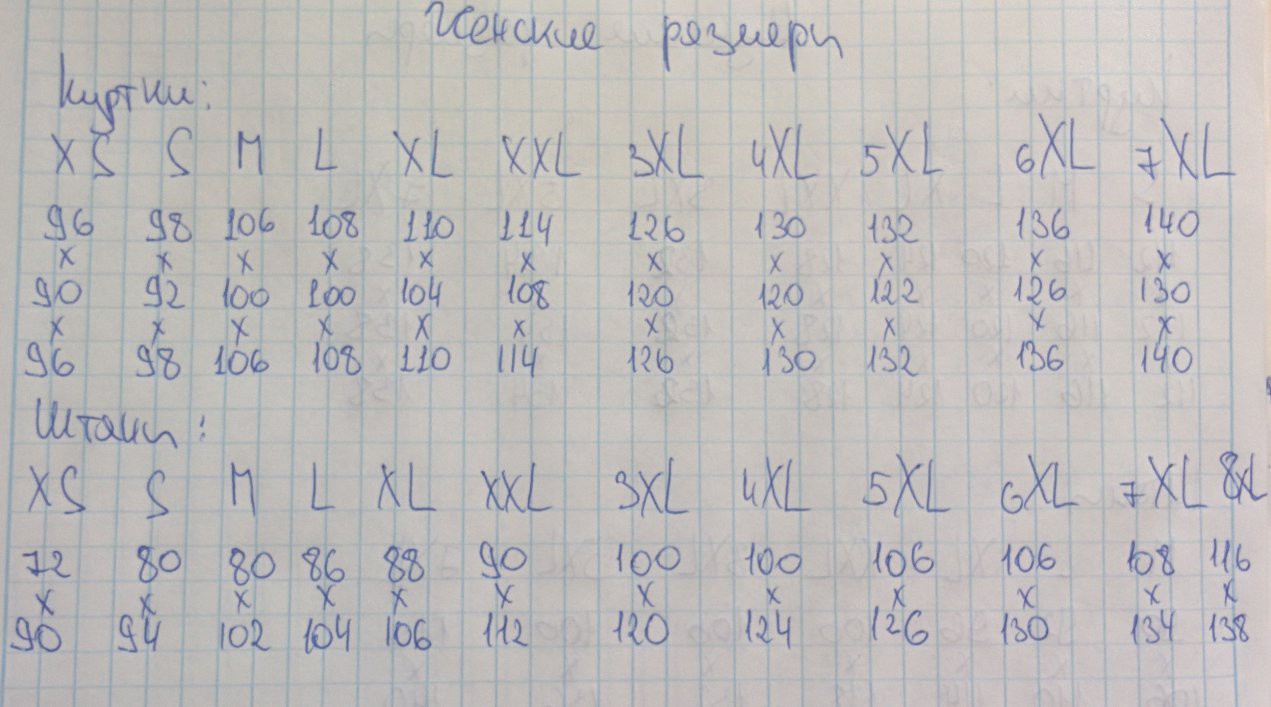 Женские размеры
Куртки:
XS S M L XL XXL 3XL 4XL 5XL 6XL 7XL
96 98 106 108 110 114 126 130 132 136 140
x x x x x x x x x x x
90 92 100 100 104 108 120 120 122 126 130
x x x x x x x x x x x
96 98 106 108 110 114 126 130 132 136 140
Штаны:
XS S M L XL XXL 3XL 4XL 5XL 6XL 7XL 8XL
72 80 80 86 88 90 100 100 106 106 108 116
x x x x x x x x x x x x
90 94 102 104 106 112 120 124 126 130 134 138